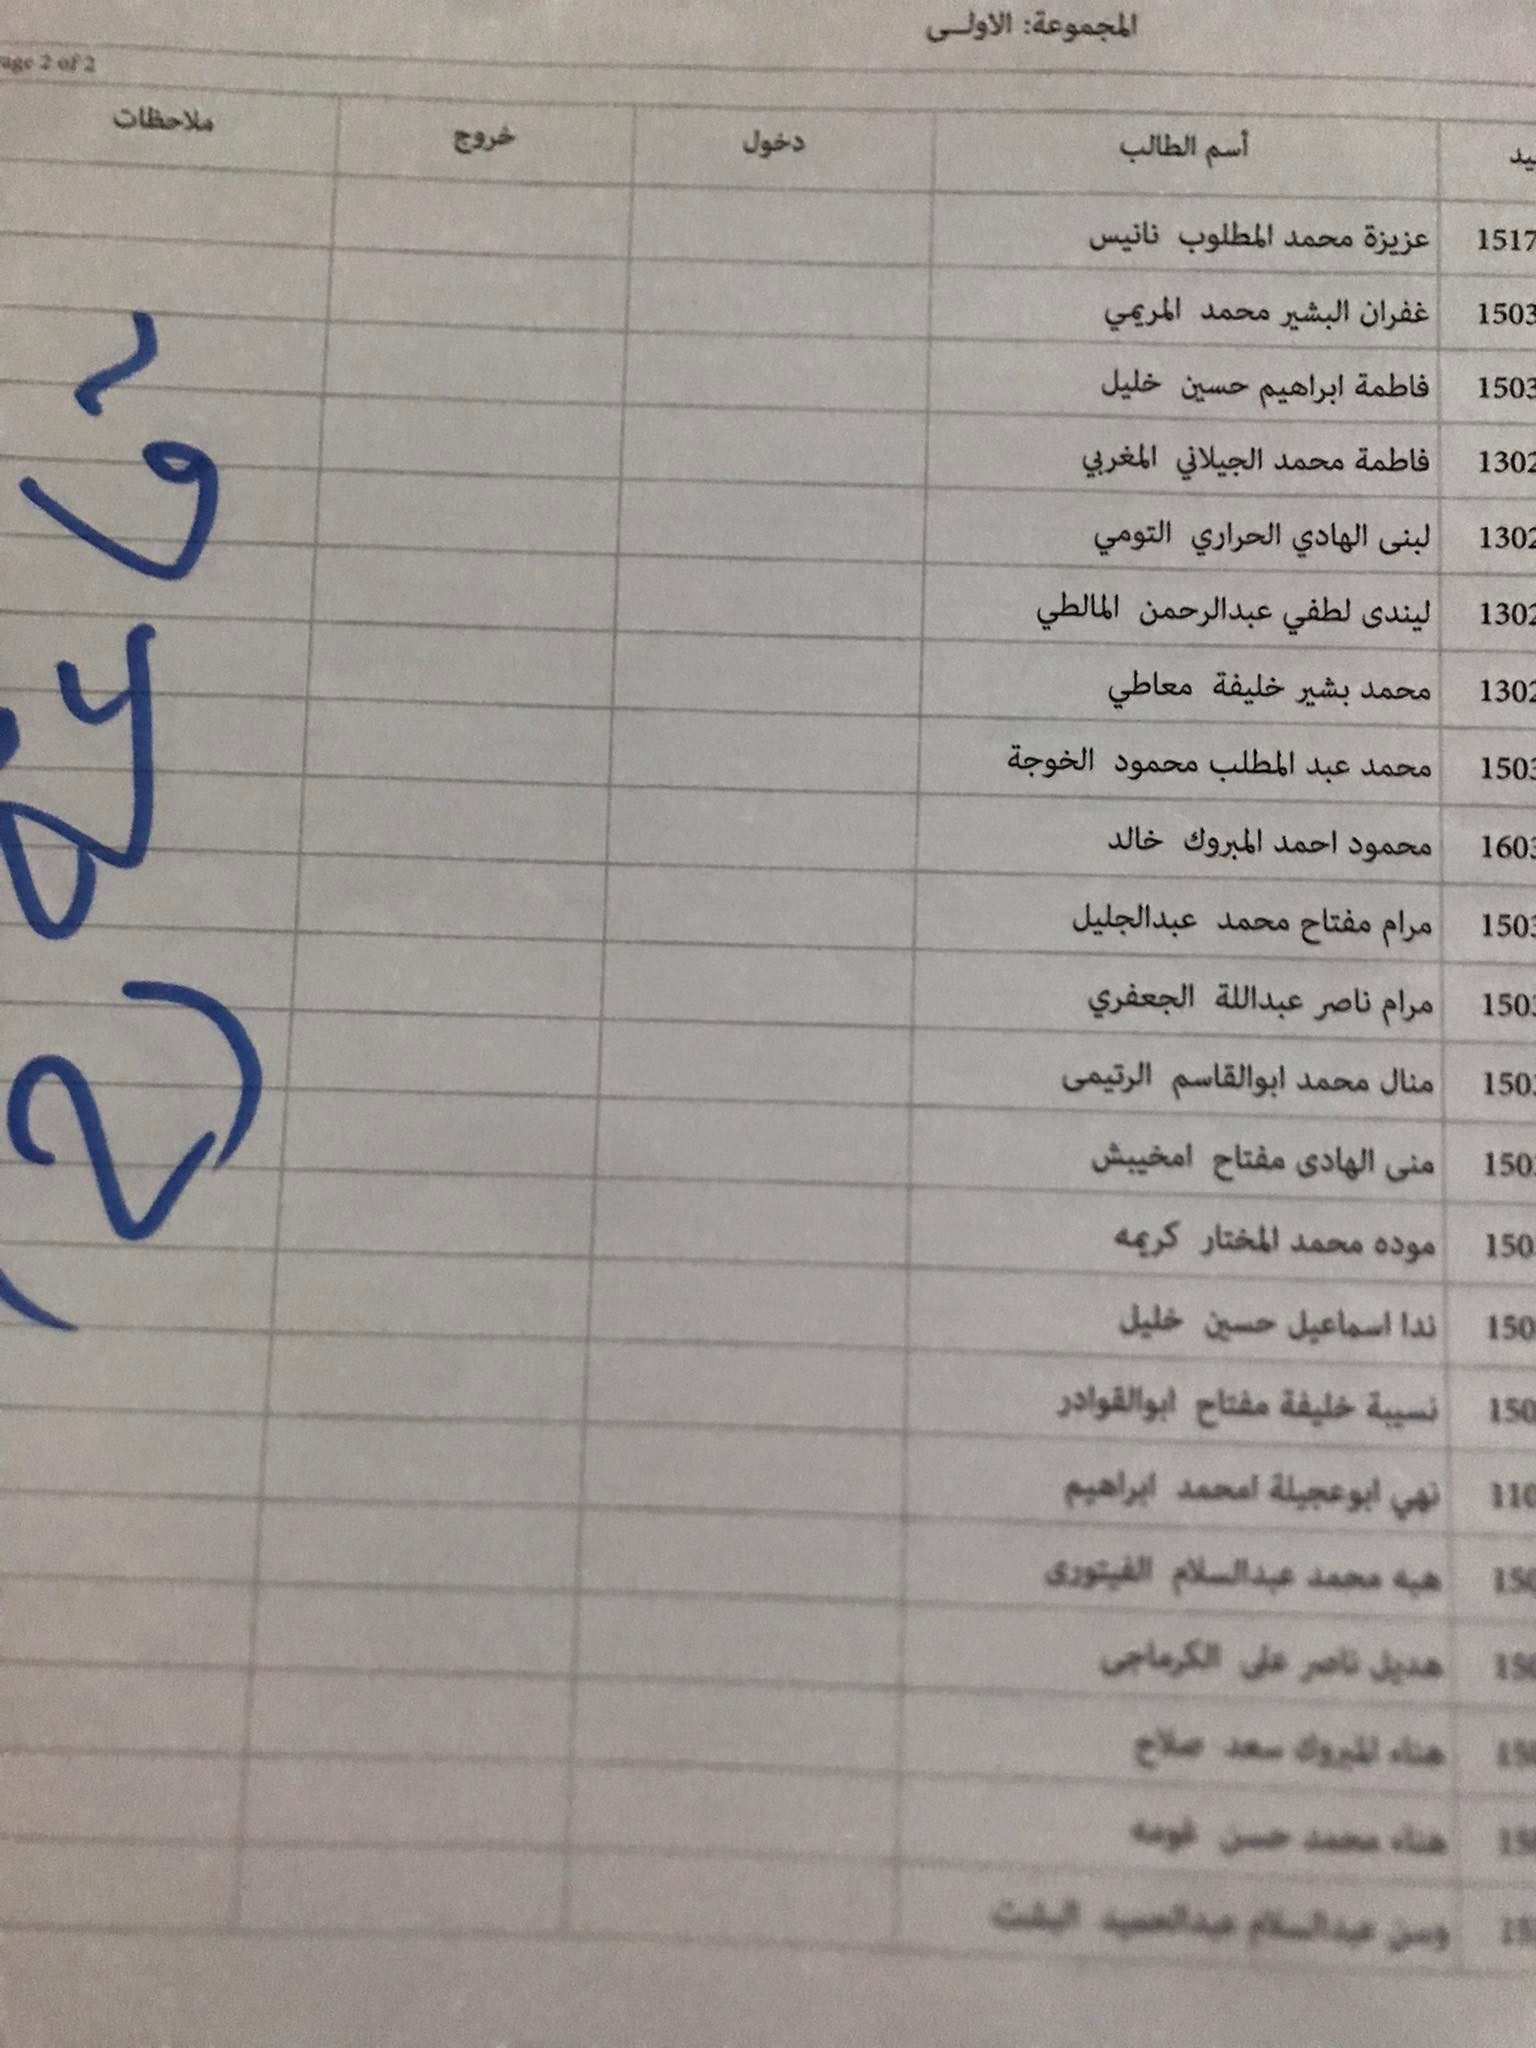 المجموعة: الاولـى
age 2 of 2
يد أسم الطالب دخول خروج ملاحظات
1517 عزيزة محمد المطلوب نانيس
1503 غفران البشير محمد المريمي
1503 فاطمة ابراهيم حسين خليل
1302 فاطمة محمد الجيلاني المغربي
1302 لبنى الهادي الحراري التومي
1302 ليندى لطفي عبدالرحمن المالطي
1302 محمد بشير خليفة معاطي
1503 محمد عبد المطلب محمود الخوجة
1603 محمود احمد المبروك خالد
1503 مرام مفتاح محمد عبدالجليل
1503 مرام ناصر عبداللة الجعفري
1503 منال محمد ابوالقاسم الرتيمى
150 منى الهادى مفتاح امخيبش
150 موده محمد المختار كريمه
150 ندا اسماعيل حسين خليل
150 نسيبة خليفة مفتاح ابوالقوادر
110 نهي ابوعجيلة امحمد ابراهيم
150 هبه محمد عبدالسلام الفيتورى
150 هديل ناصر على الكرماجى
هناء المبروك سعد صلاح
هناء محمد حسن غومه
وسن عبدالسلام عبدالحميد البشت
(2)